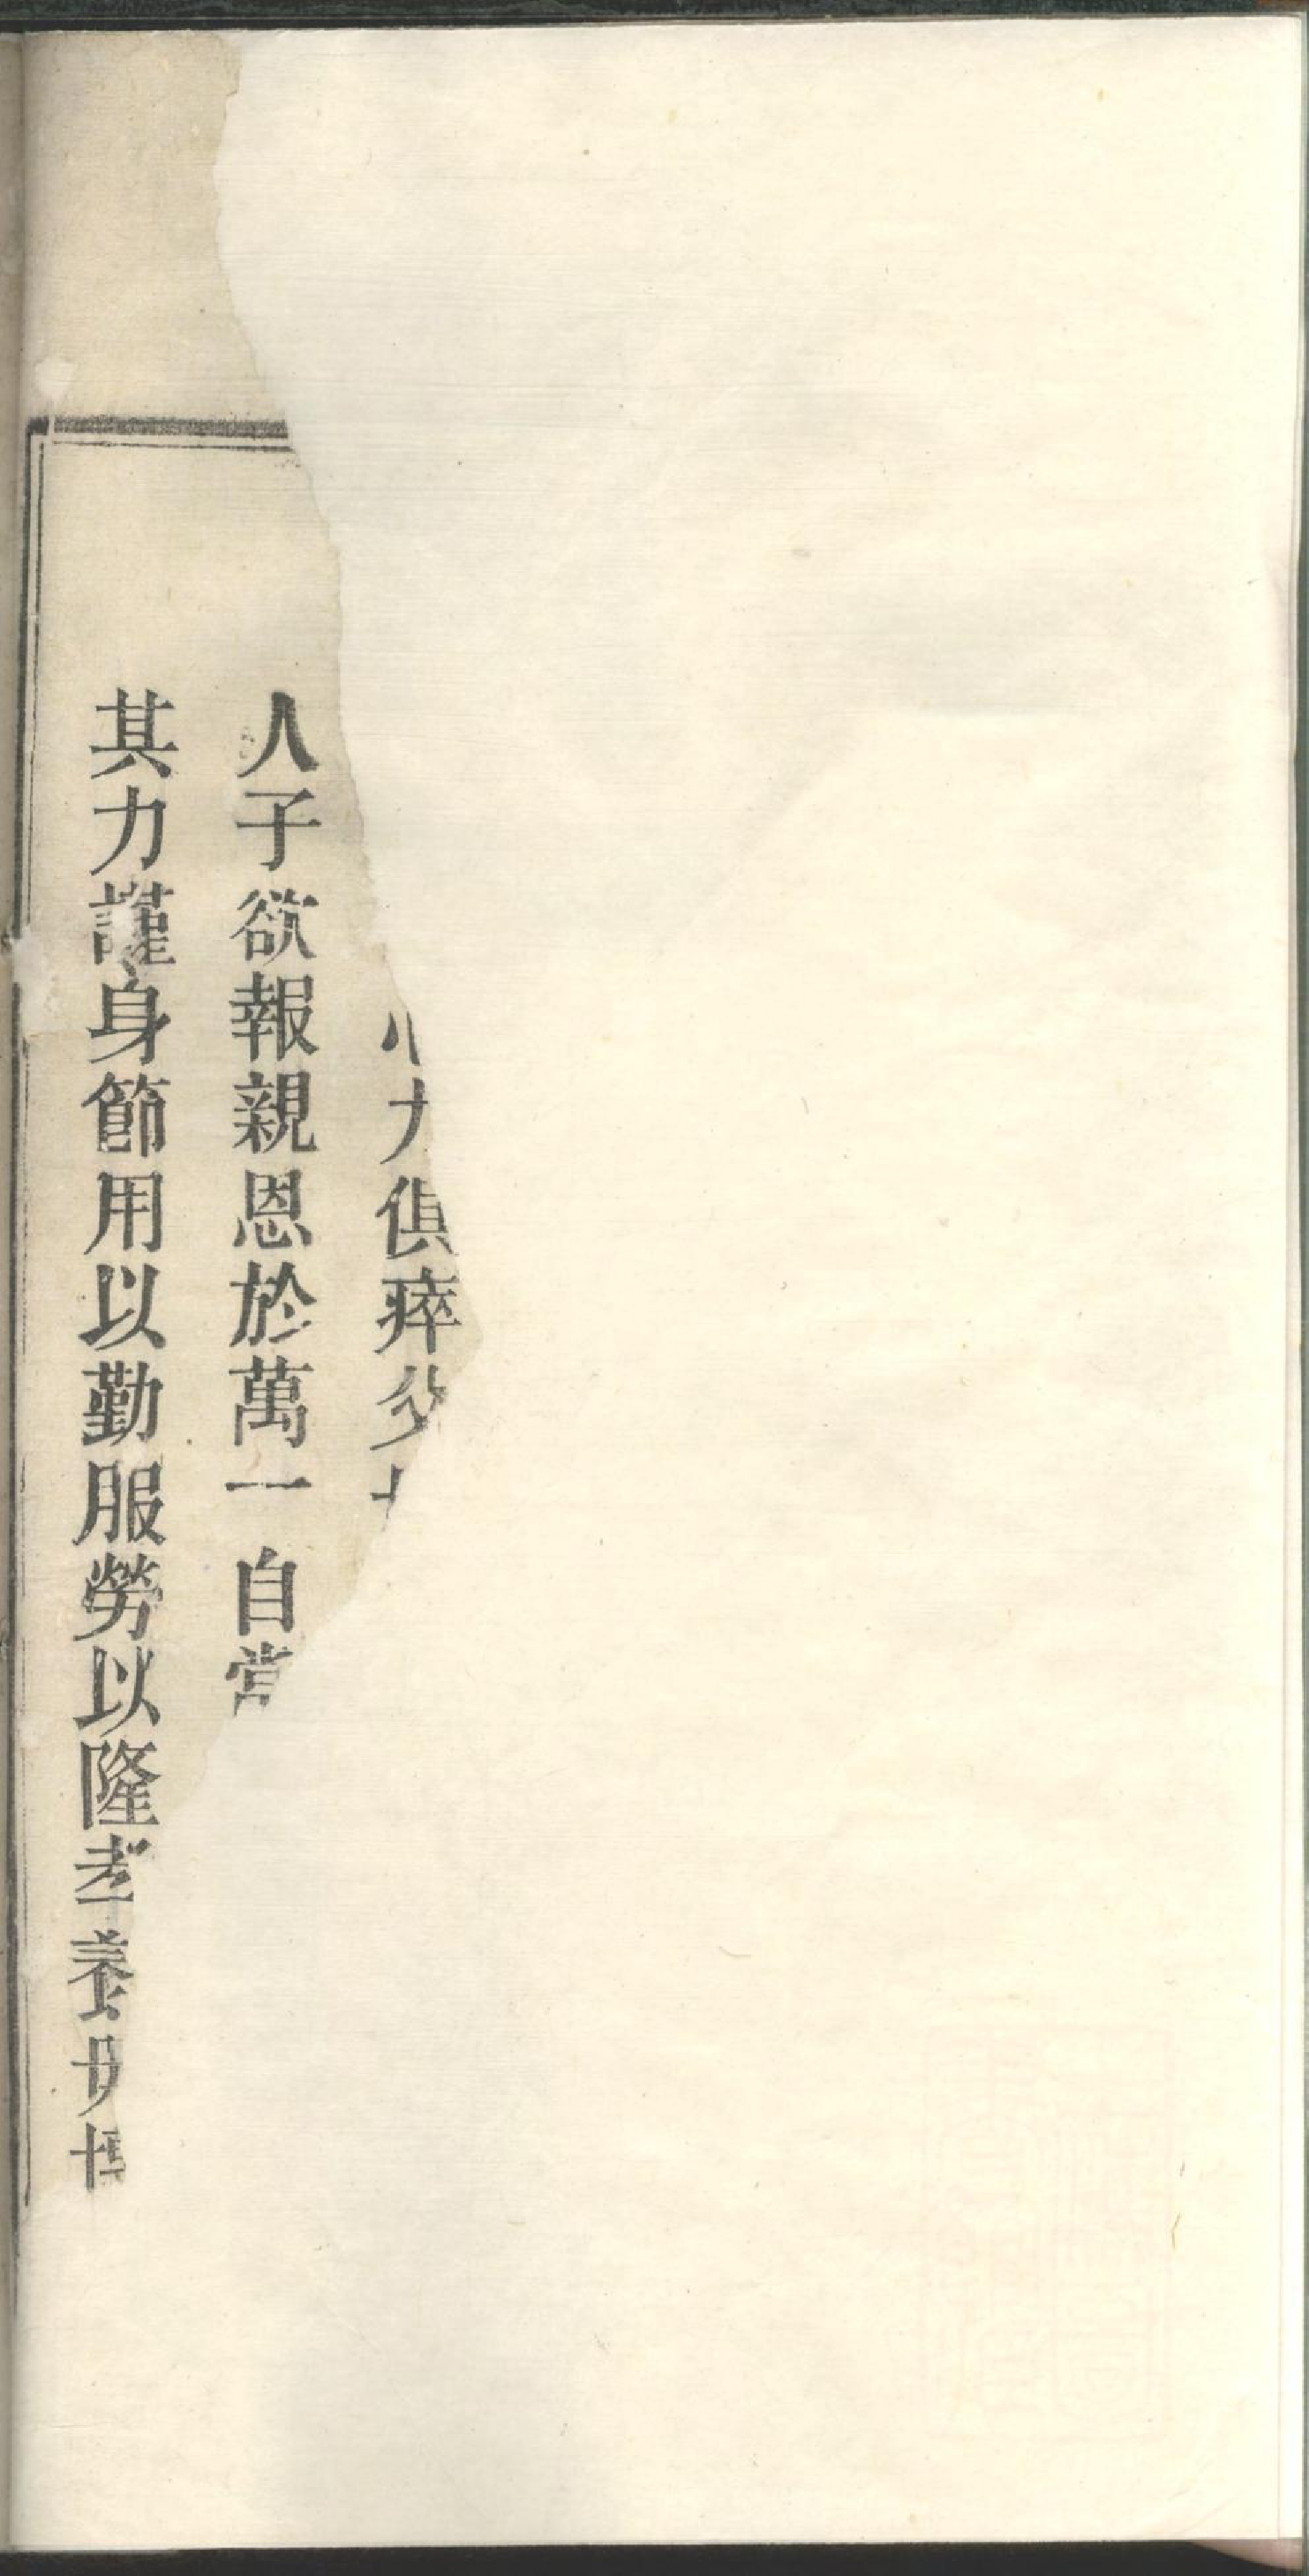 心力俱瘁父母
人子欲報親恩於萬一自當
其力謹身節用以勤服勞以隆孝養毋博